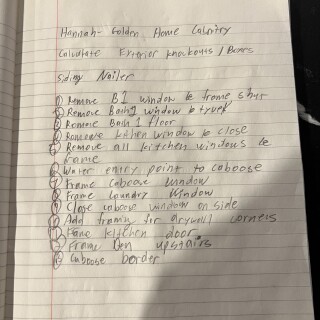 Hannah - Golden Home Cabinitry
Calculate Exterior Knockouts / Boxes
Siding Nailer
① Remove B1 window & frame shut
② Remove Bath 1 window & tyvek
③ Remove Bath 1 floor
④ Remove kithen window & close
⑤ Remove all kitchen windows &
frame
⑥ Water entry point to caboose
⑦ Frame Caboose window
⑧ Frame Laundry Window
⑨ Close caboose window on side
⑩ Add framing for drywall corners
⑪ Frame kitchen door
⑫ Frame Den upstairs
⑬ Caboose border